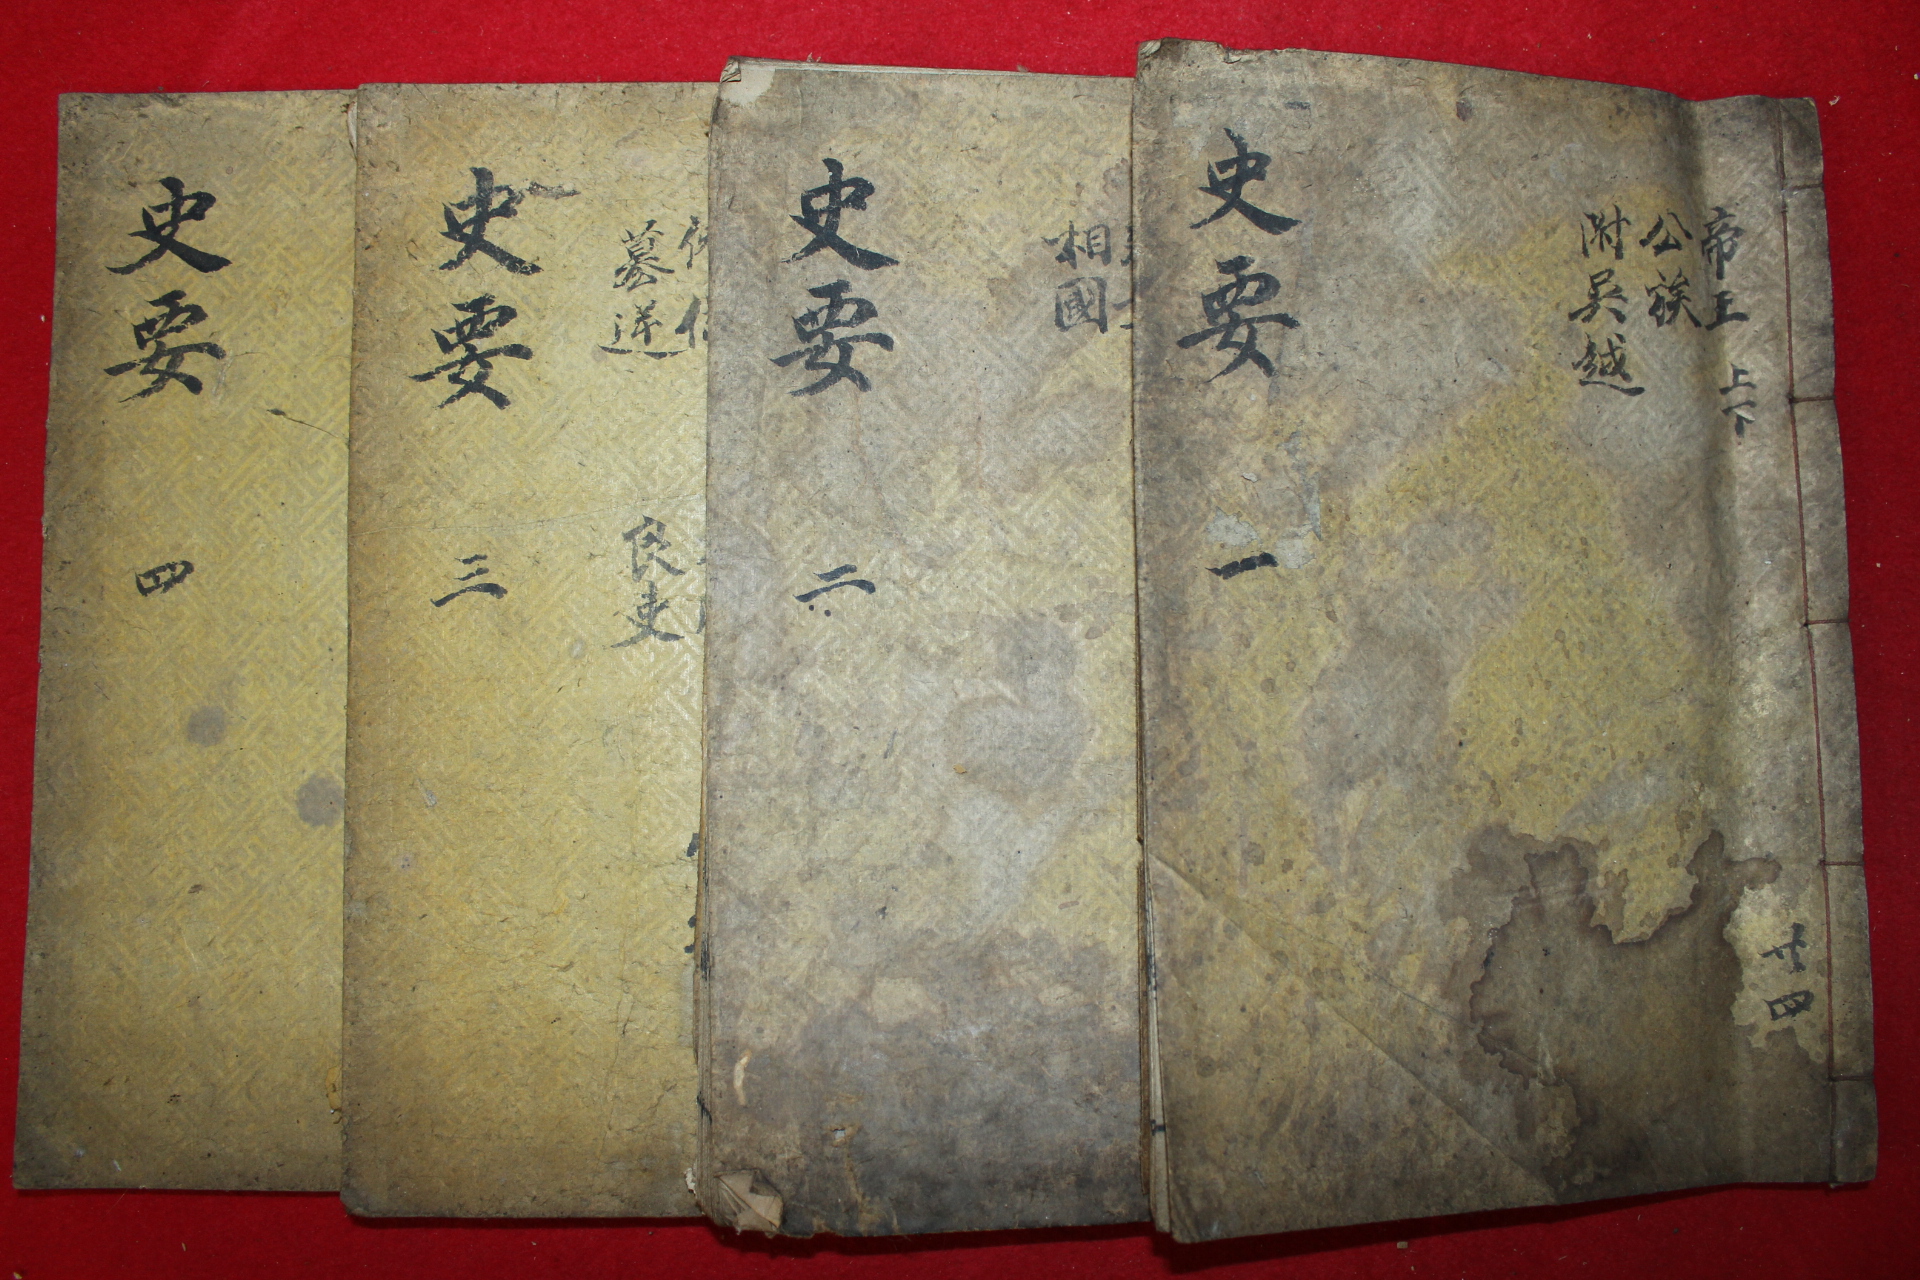 史要 一
帝王 上下
公族
附吳越
廿四
史要 二
相國
史要 三
良吏
史要 四